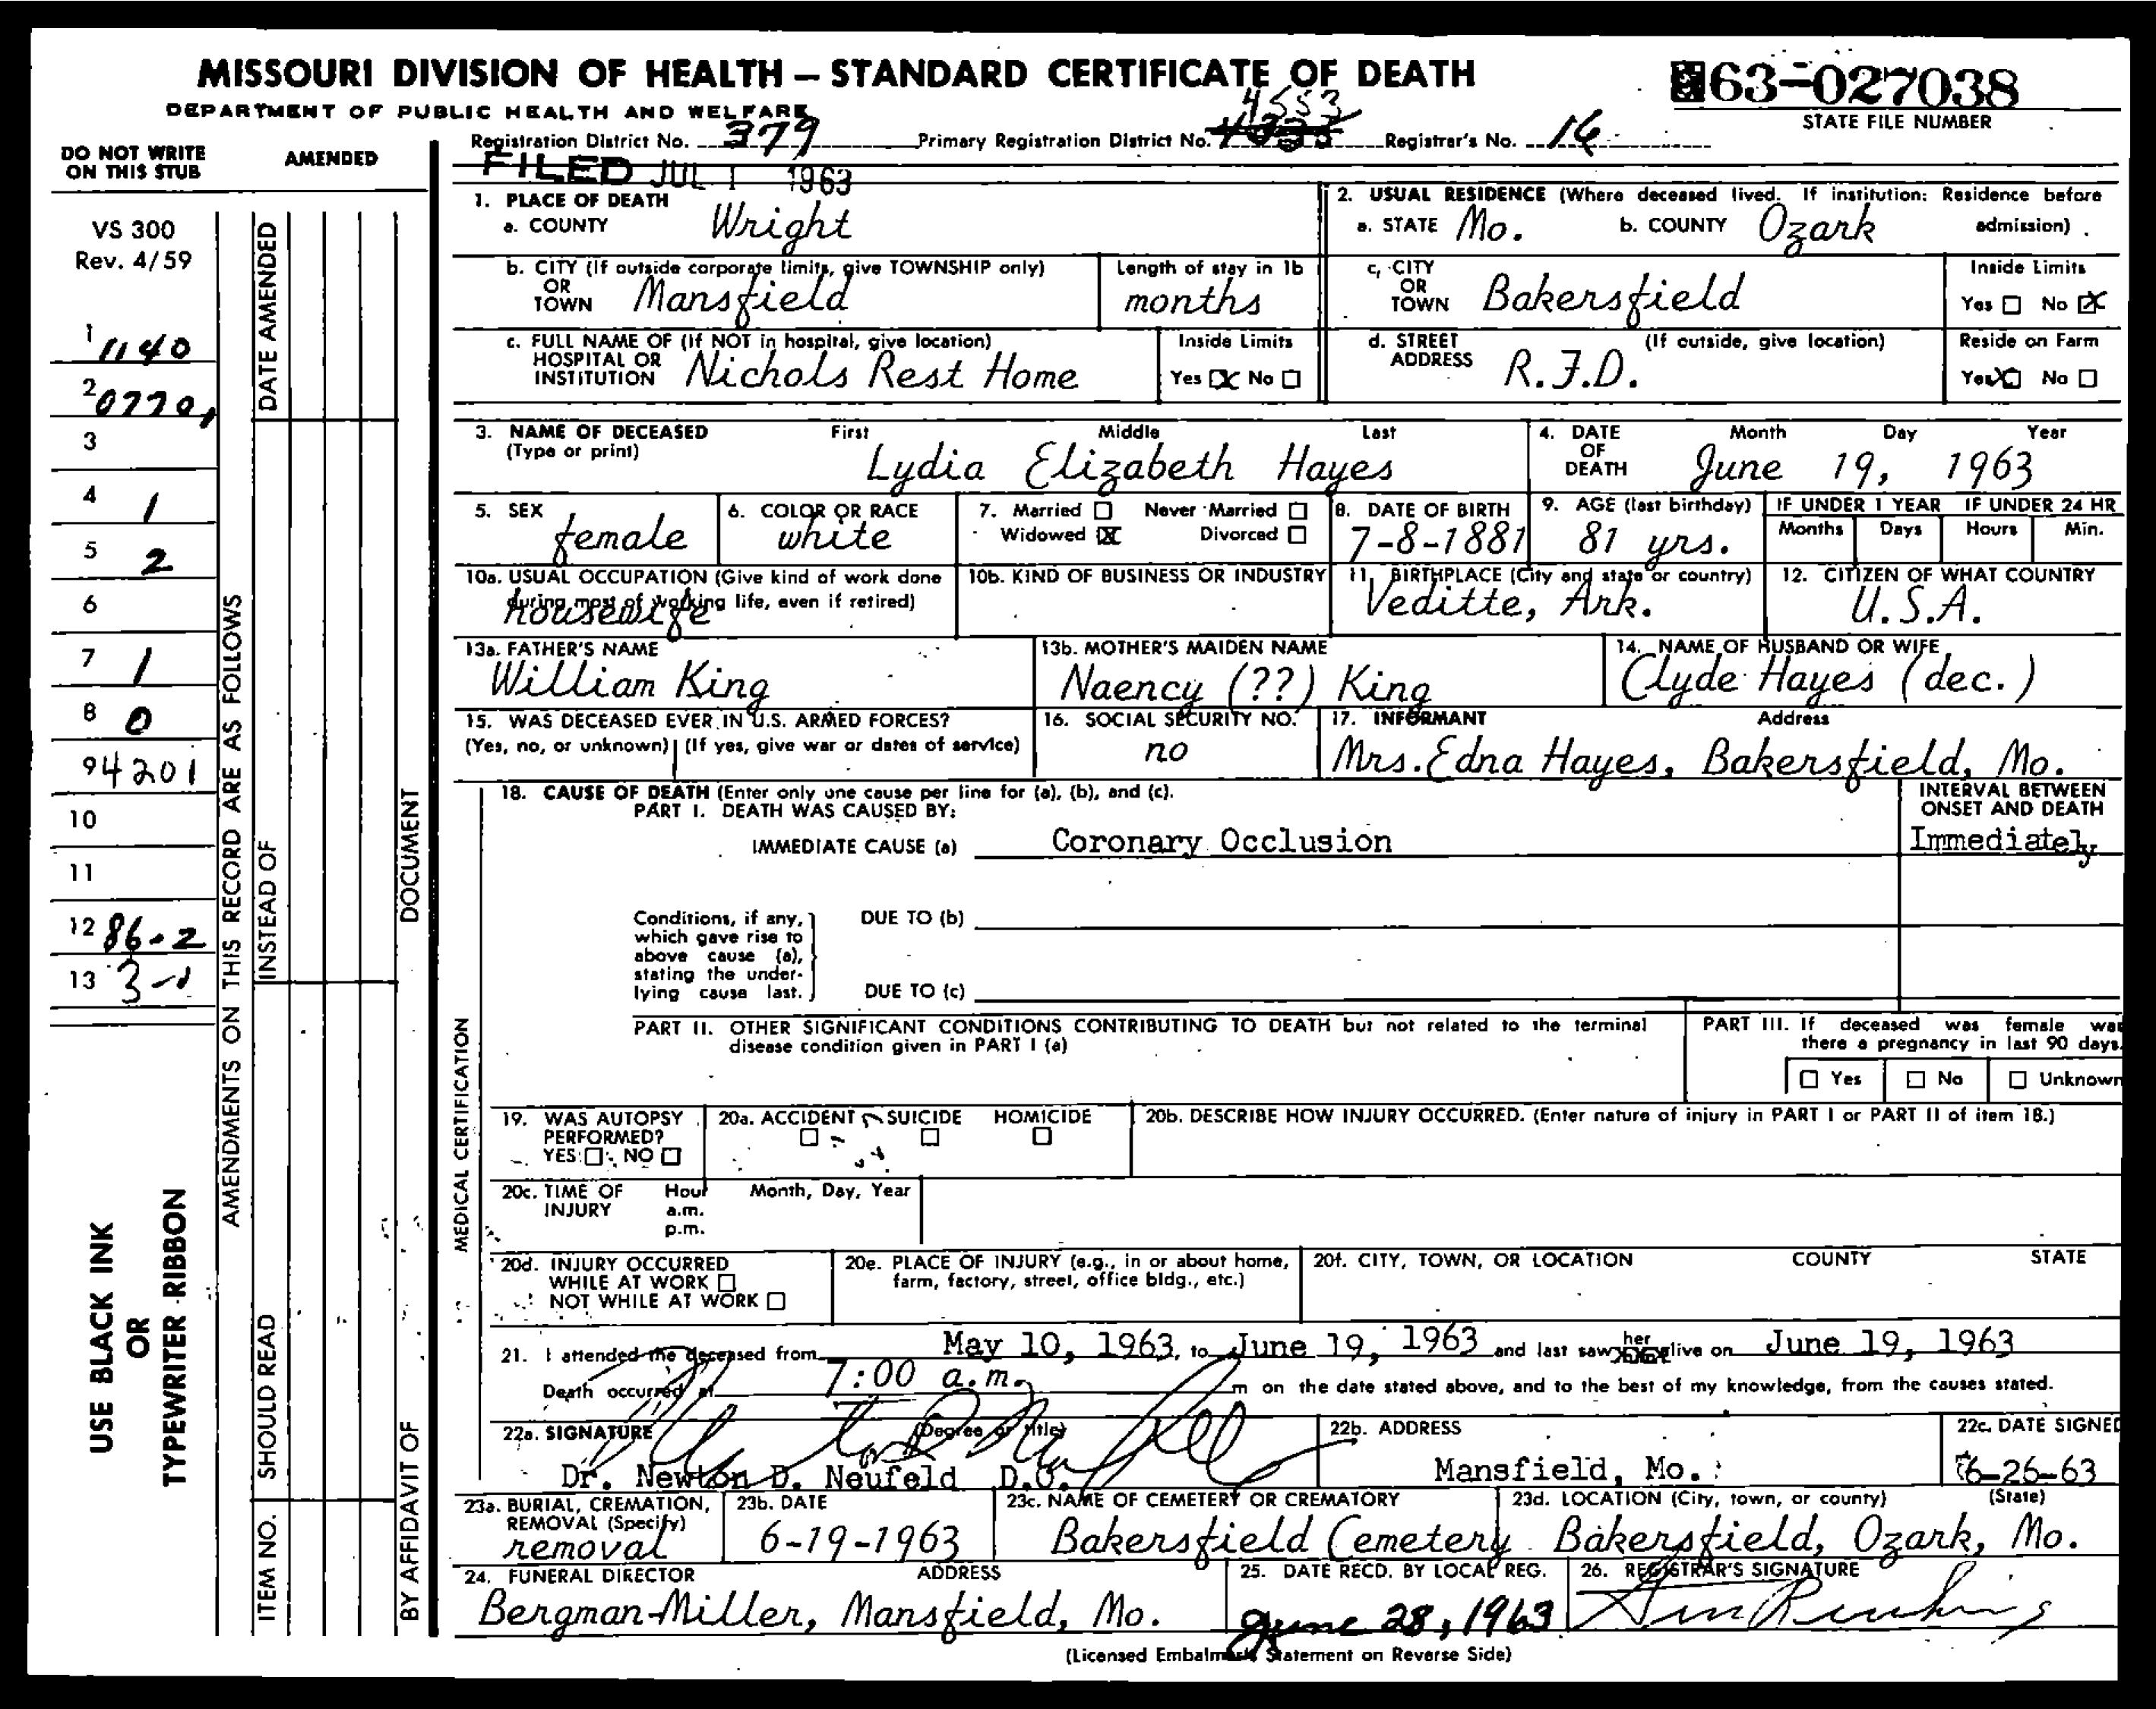 MISSOURI DIVISION OF HEALTH – STANDARD CERTIFICATE OF DEATH
63-027038
DEPARTMENT OF PUBLIC HEALTH AND WELFARE
STATE FILE NUMBER
4553
Registration District No. 379 Primary Registration District No. Registrar's No. 16
FILED JUL 1 1963
DO NOT WRITE ON THIS STUB
AMENDED
VS 300
Rev. 4/59
1 1140
2 0770
3
4 1
5 2
6
7 1
8 0
9 4201
10
11
12 86-2
13 3-1
USE BLACK INK
OR
TYPEWRITER RIBBON
AMENDMENTS ON THIS RECORD ARE AS FOLLOWS
DATE AMENDED
INSTEAD OF
SHOULD READ
ITEM NO.
DOCUMENT
BY AFFIDAVIT OF
1. PLACE OF DEATH
a. COUNTY Wright
2. USUAL RESIDENCE (Where deceased lived. If institution: Residence before admission)
a. STATE Mo. b. COUNTY Ozark
b. CITY (If outside corporate limits, give TOWNSHIP only)
OR
TOWN Mansfield
Length of stay in 1b
months
c. CITY
OR
TOWN Bakersfield
Inside Limits
Yes ☐ No ☒
c. FULL NAME OF (If NOT in hospital, give location)
HOSPITAL OR
INSTITUTION Nichols Rest Home
Inside Limits
Yes ☒ No ☐
d. STREET (If outside, give location)
ADDRESS R.F.D.
Reside on Farm
Yes ☒ No ☐
3. NAME OF DECEASED First Middle Last
(Type or print)
Lydia Elizabeth Hayes
4. DATE OF DEATH Month Day Year
June 19, 1963
5. SEX
female
6. COLOR OR RACE
white
7. Married ☐ Never Married ☐
Widowed ☒ Divorced ☐
8. DATE OF BIRTH
7-8-1881
9. AGE (last birthday)
81 yrs.
IF UNDER 1 YEAR IF UNDER 24 HR
Months Days Hours Min.
10a. USUAL OCCUPATION (Give kind of work done
during most of working life, even if retired)
housewife
10b. KIND OF BUSINESS OR INDUSTRY
11. BIRTHPLACE (City and state or country)
Veditte, Ark.
12. CITIZEN OF WHAT COUNTRY
U.S.A.
13a. FATHER'S NAME
William King
13b. MOTHER'S MAIDEN NAME
Naency (??) King
14. NAME OF HUSBAND OR WIFE
Clyde Hayes (dec.)
15. WAS DECEASED EVER IN U.S. ARMED FORCES?
(Yes, no, or unknown) (If yes, give war or dates of service)
16. SOCIAL SECURITY NO.
no
17. INFORMANT Address
Mrs. Edna Hayes, Bakersfield, Mo.
18. CAUSE OF DEATH (Enter only one cause per line for (a), (b), and (c).
PART I. DEATH WAS CAUSED BY:
INTERVAL BETWEEN
ONSET AND DEATH
IMMEDIATE CAUSE (a) Coronary Occlusion
Immediately
Conditions, if any,
which gave rise to
above cause (a),
stating the under-
lying cause last.
DUE TO (b)
DUE TO (c)
MEDICAL CERTIFICATION
PART II. OTHER SIGNIFICANT CONDITIONS CONTRIBUTING TO DEATH but not related to the terminal
disease condition given in PART I (a)
PART III. If deceased was female was
there a pregnancy in last 90 days.
☐ Yes ☐ No ☐ Unknown
19. WAS AUTOPSY
PERFORMED?
YES ☐ NO ☐
20a. ACCIDENT SUICIDE HOMICIDE
☐ ☐ ☐
20b. DESCRIBE HOW INJURY OCCURRED. (Enter nature of injury in PART I or PART II of item 18.)
20c. TIME OF INJURY Hour a.m. p.m. Month, Day, Year
20d. INJURY OCCURRED
WHILE AT WORK ☐
NOT WHILE AT WORK ☐
20e. PLACE OF INJURY (e.g., in or about home,
farm, factory, street, office bldg., etc.)
20f. CITY, TOWN, OR LOCATION COUNTY STATE
21. I attended the deceased from May 10, 1963, to June 19, 1963 and last saw her alive on June 19, 1963
Death occurred at 7:00 a.m. m on the date stated above, and to the best of my knowledge, from the causes stated.
22a. SIGNATURE (Degree or title)
Dr. Newton D. Neufeld D.O.
22b. ADDRESS
Mansfield, Mo.
22c. DATE SIGNED
6-26-63
23a. BURIAL, CREMATION,
REMOVAL (Specify)
removal
23b. DATE
6-19-1963
23c. NAME OF CEMETERY OR CREMATORY
Bakersfield Cemetery
23d. LOCATION (City, town, or county) (State)
Bakersfield, Ozark, Mo.
24. FUNERAL DIRECTOR ADDRESS
Bergman-Miller, Mansfield, Mo.
25. DATE RECD. BY LOCAL REG.
June 28, 1963
26. REGISTRAR'S SIGNATURE
(Licensed Embalmer's Statement on Reverse Side)